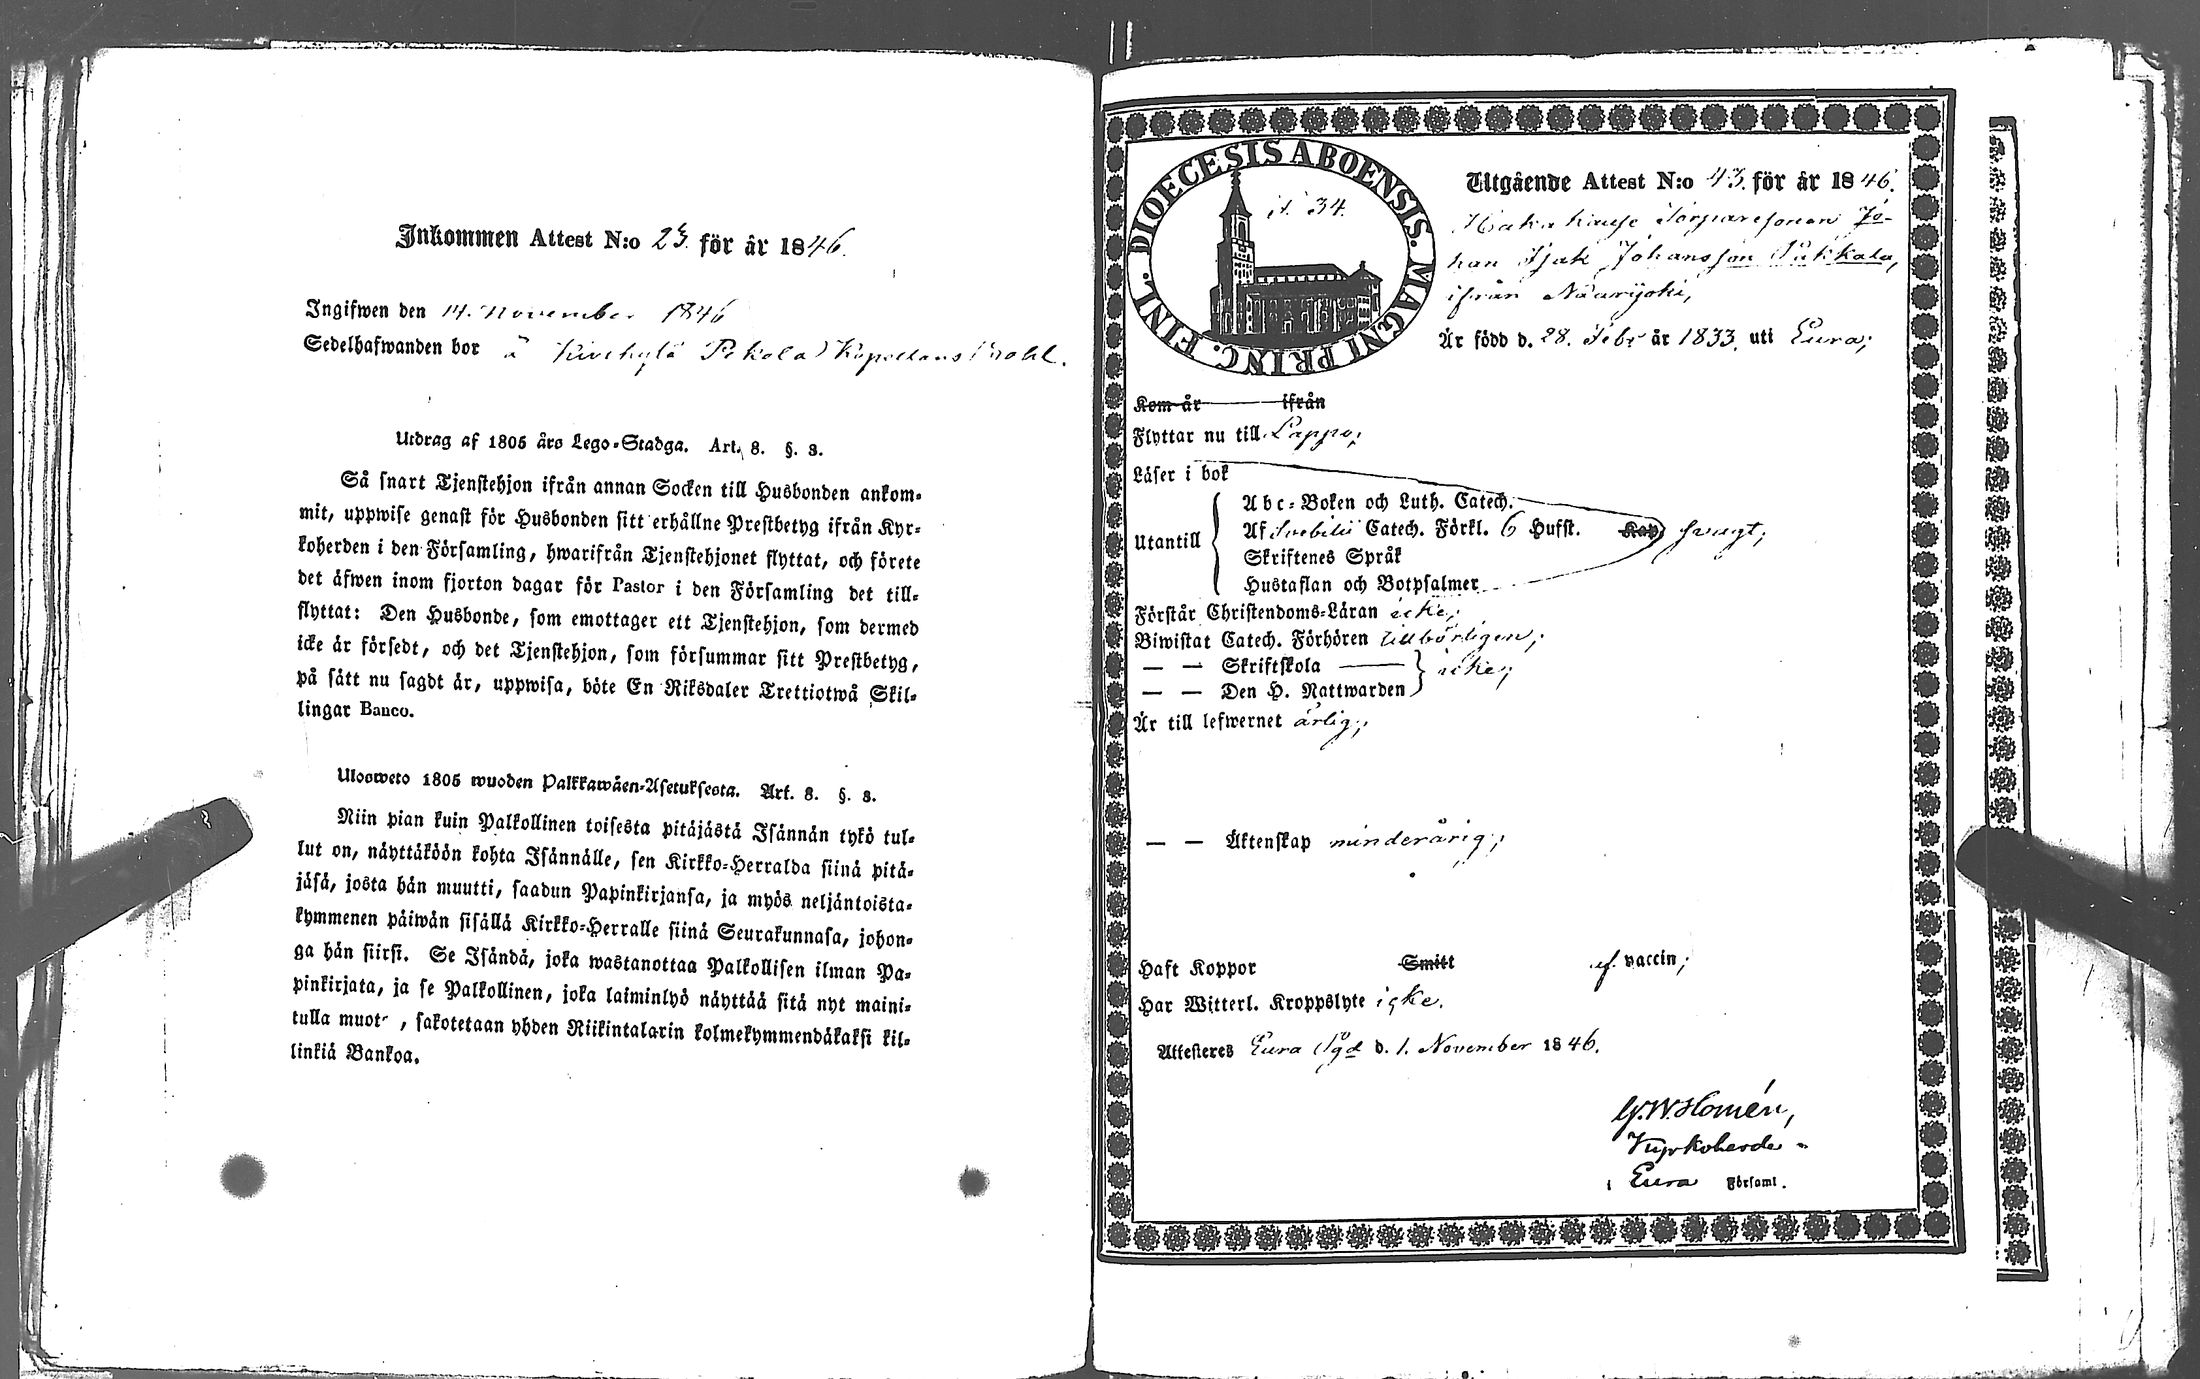 Inkommen Attest N:o 23. för år 1846.
Ingifwen den 14. November 1846
Sedelhafwanden bor å Kivikylä Kapellans
Utdrag af 1805 års Lego-Stadga. Art. 8. §. 3.
Så snart Tjenstehjon ifrån annan Socken till Husbonden ankom-
mit, uppwise genast för Husbonden sitt erhållne Prestbetyg ifrån Kyr-
koherden i den Församling, hwarifrån Tjenstehjonet flyttat, och förete
det äfwen inom fjorton dagar för Pastor i den Församling det till-
flyttat: Den Husbonde, som emottager ett Tjenstehjon, som dermed
icke är försedt, och det Tjenstehjon, som försummar sitt Prestbetyg,
på sätt nu sagdt är, uppwisa, böte En Riksdaler Trettiotwå Skil-
lingar Banco.
Ulosweto 1805 wuoden Palkkawäen-Asetuksesta. Art. 8. §. 3.
Niin pian kuin Palkollinen toisesta pitäjästä Isännän tykö tul-
lut on, näyttäköön kohta Isännälle, sen Kirkko-Herralda siinä pitä-
jäsä, josta hän muutti, saadun Papinkirjansa, ja myös neljäntoista-
kymmenen päiwän sisällä Kirkko-Herralle siinä Seurakunnasa, johon-
ga hän siirsi. Se Isändä, joka wastanottaa Palkollisen ilman Pa-
pinkirjata, ja se Palkollinen, joka laiminlyö näyttää sitä nyt maini-
tulla muot , sakotetaan yhden Riikintalarin kolmekymmendäkaksi kil-
linkiä Bankoa.
DIOECESIS ABOENSIS. MAGNI PRINC. FINL.
p. 34.
Utgående Attest N:o 43. för år 1846.
Torparesonen Jo-
han Isak Johansson Pukkala,
ifrån Naarijoki,
Är född d. 28. Febr år 1833. uti Eura;
Kom år ifrån
Flyttar nu till Lappo;
Läser i bok
Utantill
Abc-Boken och Luth. Catech.
Af Svebilii Catech. Förkl. 6 Hufst. Kap. svagt;
Skriftenes Språk
Hustaflan och Botpsalmer
Förstår Christendoms-Läran icke;
Biwistat Catech. Förhören tillbörligen;
— — Skriftskola
— — Den H. Nattwarden icke;
Är till lefwernet ärlig;
— — Äktenskap minderårig;
Haft Koppor Smitt af vaccin;
Har Witterl. Kroppslyte icke.
Attesteres Eura Pgd d. 1. November 1846.
G.W. Homén,
Kyrkoherde
i Eura Församl.